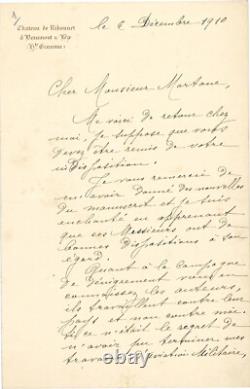 Château de Ribonnet
à Beaumont s/ Lèze
Hte Garonne
le 6 Décembre 1910
Cher Monsieur Martane,
Me voici de retour chez
moi. Je suppose que vous
devez être remis de votre
indisposition.
Je vous remercie de
m'avoir donné des nouvelles
du manuscrit et je suis
enchanté en apprenant
que ces Messieurs ont de
bonnes dispositions à son
égard.
Quant à la campagne
de dénigrement vous en
connaissez les auteurs,
ils travaillent contre leur
pays et non contre moi.
si ce n'était le regret de
n'avoir pu terminer mes
travaux d'Aviation Militaire,